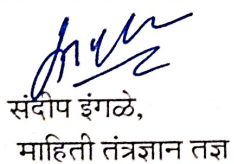 संदीप इंगळे,
माहिती तंत्रज्ञान तज्ञ